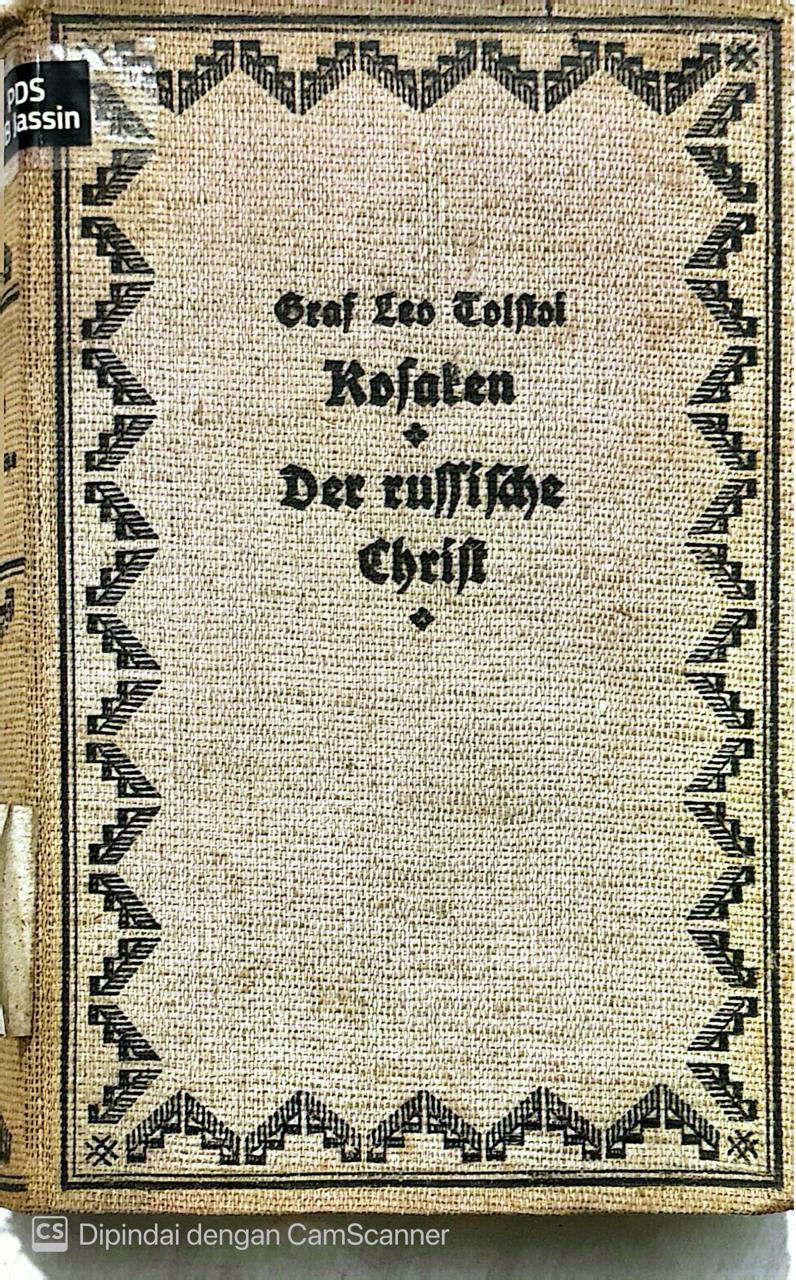 PDS
Jassin
Graf Leo Tolstoi
Kosaken
Der russische
Christ
CS Dipindai dengan CamScanner